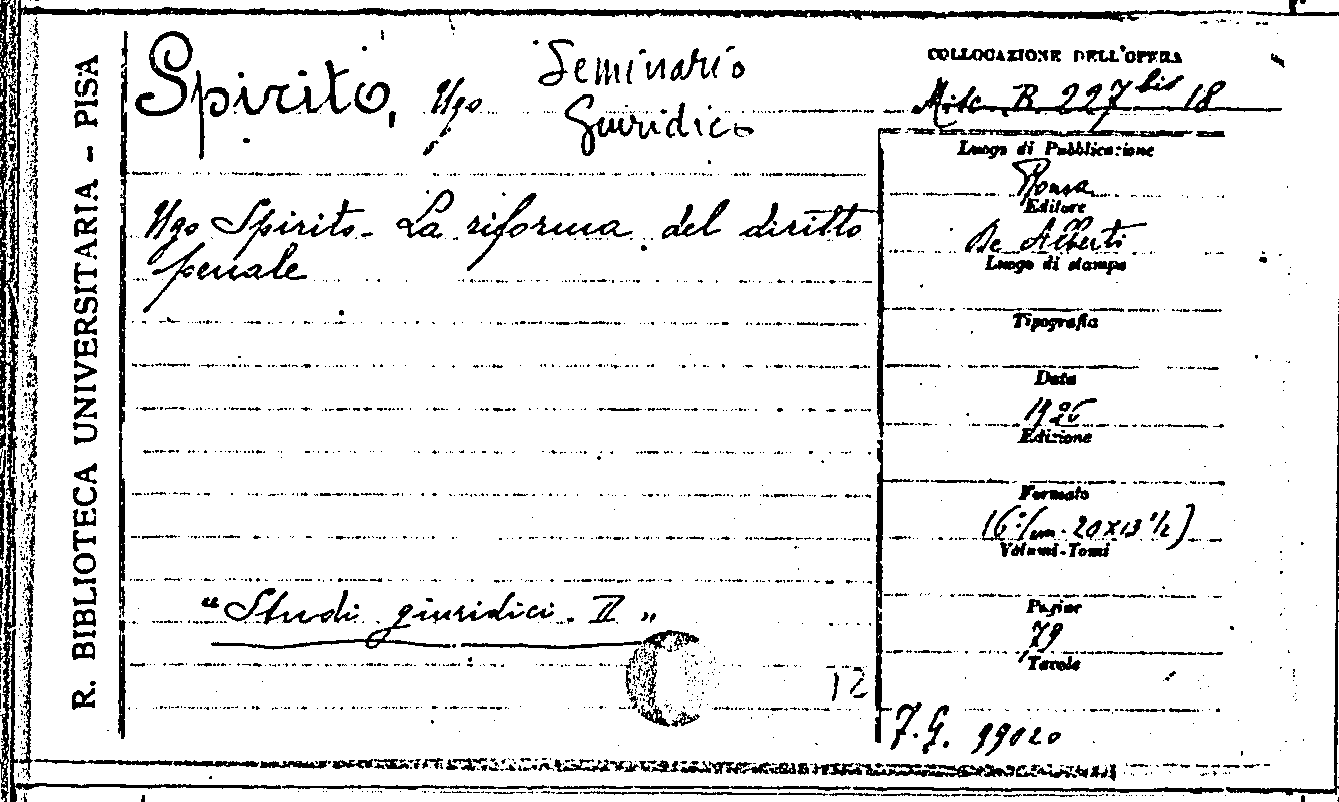 R. BIBLIOTECA UNIVERSITARIA - PISA
Spirito, Ugo
Seminario
Giuridico
COLLOCAZIONE DELL'OPERA
Misc. B. 227 bis 18
Ugo Spirito - La riforma del diritto
penale
"Studi giuridici. II"
12
Luogo di Pubblicazione
Roma
Editore
De Alberti
Luogo di stampa
Tipografia
Data
1926
Edizione
Formato
16° (cm. 20x13 1/2)
Volumi-Tomi
Pagine
79
Tavole
99020